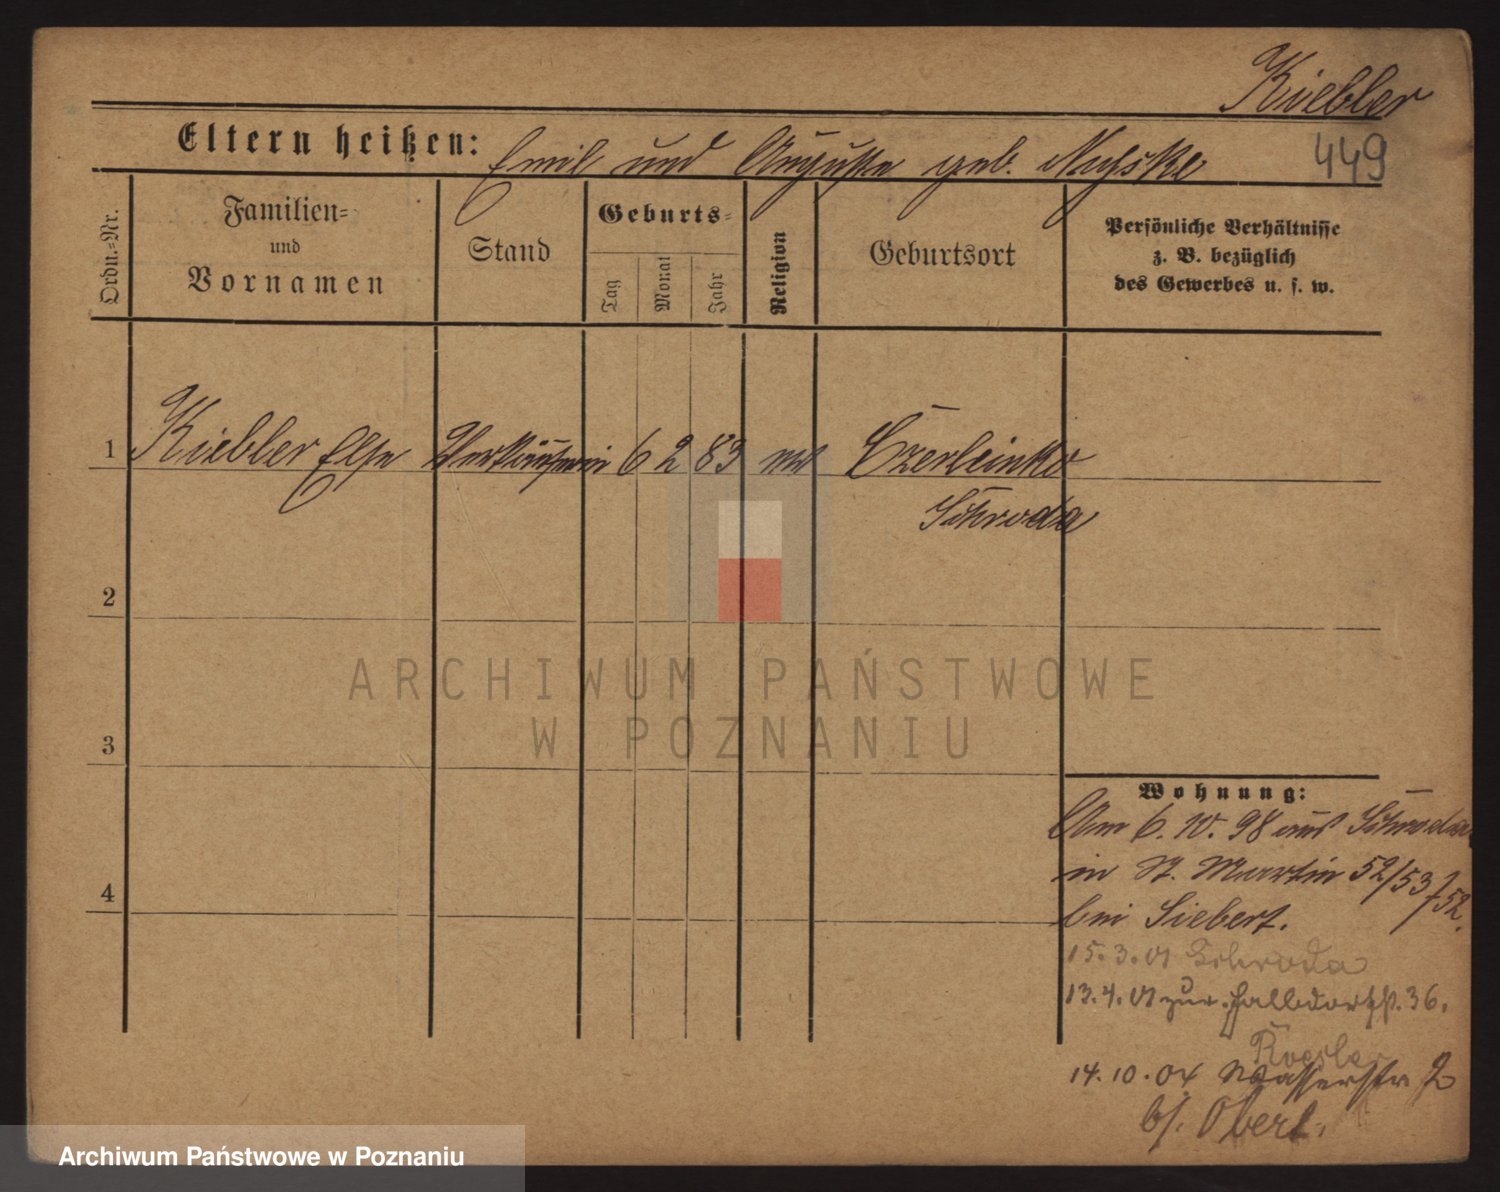 Kiebler
Eltern heißen: Emil und Auguste geb.
449
Ordn.=Nr.
Familien=
und
Vornamen
Stand
Geburts=
Tag
Monat
Jahr
Religion
Geburtsort
Persönliche Verhältnisse
z. B. bezüglich
des Gewerbes u. s. w.
1 Kiebler Else Verkäuferin 6 2 83 Czerleinko
Schroda
2
3
4
ARCHIWUM PAŃSTWOWE
W POZNANIU
Wohnung:
Am 6.10.98 aus Schroda
in St. Martin 52/53/52.
bei Siebert.
15.3.01 Schroda
13.4.01 zur. Halbdorfst. 36.
14.10.04 Wasserstr 2
b/. Obert.
Archiwum Państwowe w Poznaniu